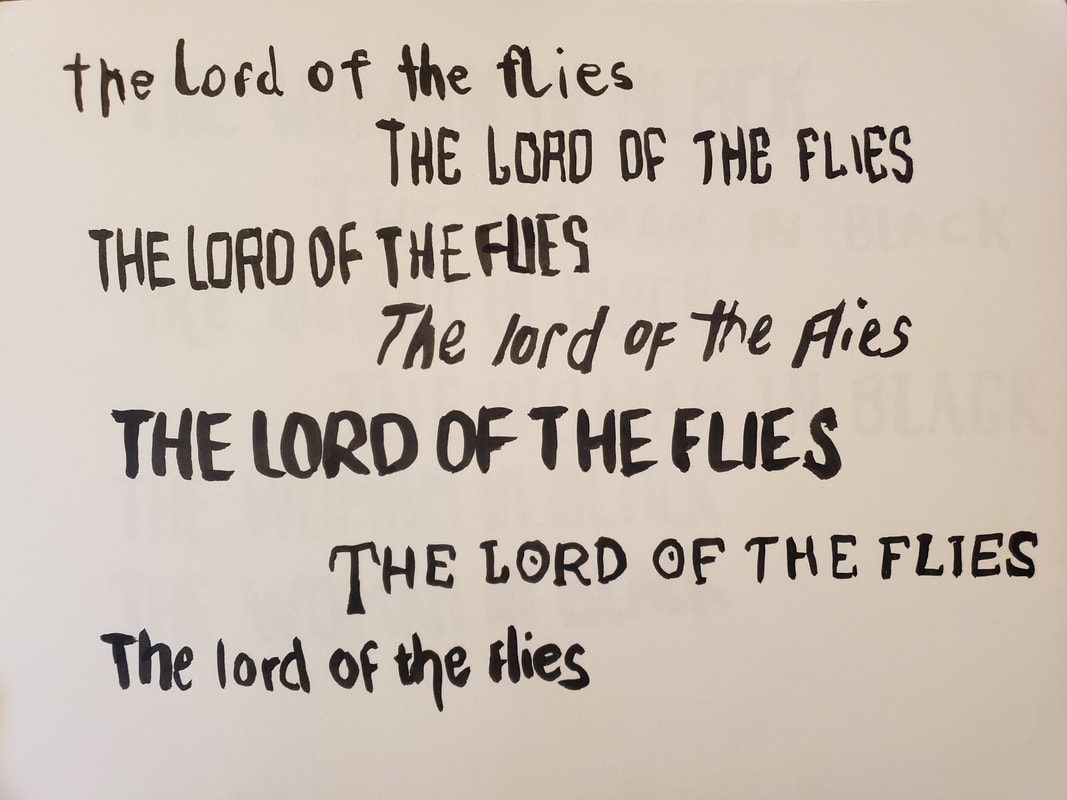 the Lord of the flies
THE LORD OF THE FLIES
THE LORD OF THE FLIES
The lord of the flies
THE LORD OF THE FLIES
THE LORD OF THE FLIES
The lord of the flies